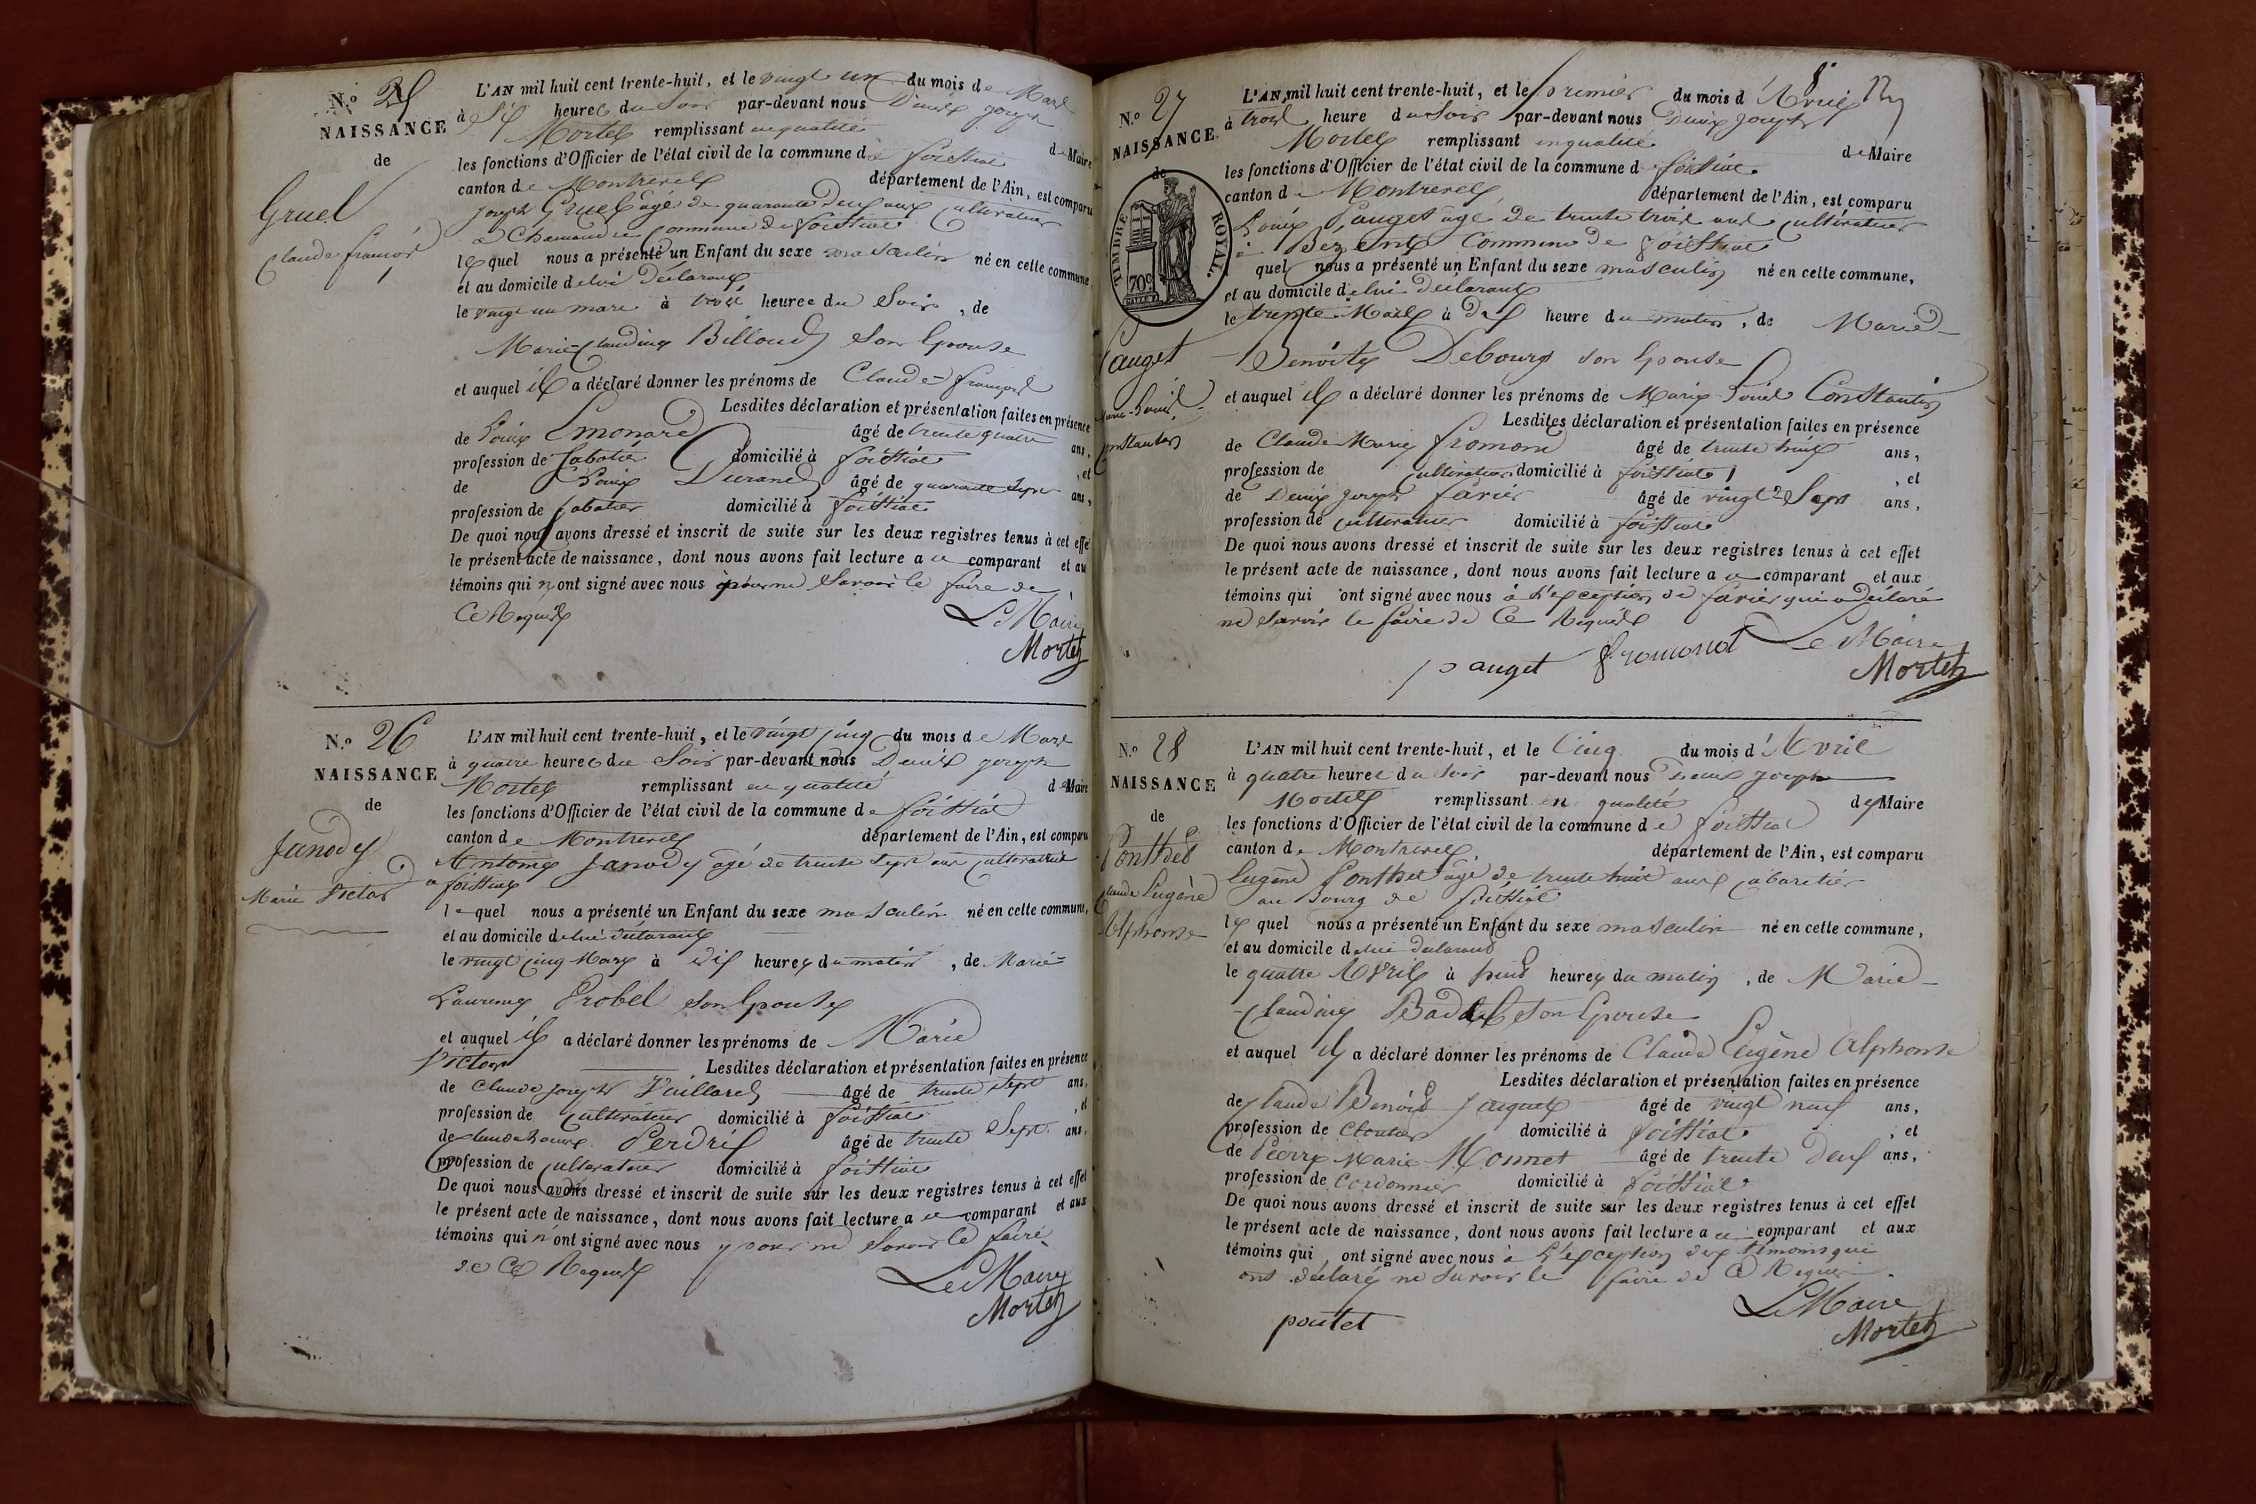 N.º 25
NAISSANCE
de
Gruel
Claude françois
L'AN mil huit cent trente-huit, et le vingt un du mois de Mars
à six heures du Soir par-devant nous Denis joseph
Mortel remplissant en qualité de Maire
les fonctions d'Officier de l'état civil de la commune de foissiat
canton de Montrevel département de l'Ain, est comparu
joseph Gruel agé de quarante deux ans cultivateur
a commune de foissiat
le quel nous a présenté un Enfant du sexe masculin né en cette commune
et au domicile de lui déclarant
le vingt un mars à trois heures du Soir, de
Marie Claudine Billoud Son Epouse
et auquel il a déclaré donner les prénoms de Claude françois
Lesdites déclaration et présentation faites en présence
de Louis Emonard âgé de trente quatre ans,
profession de Sabotier domicilié à foissiat, et
de Louis Durand âgé de quarante sept ans,
profession de Sabotier domicilié à foissiat
De quoi nous avons dressé et inscrit de suite sur les deux registres tenus à cet effet
le présent acte de naissance, dont nous avons fait lecture a ce comparant et au
témoins qui n'ont signé avec nous pour ne Savoir le faire de
Ce Requis
Le Maire
Mortel
N.º 26
NAISSANCE
de
Janody
Marie Victor
L'AN mil huit cent trente-huit, et le vingt cinq du mois de Mars
à quatre heures du Soir par-devant nous Denis joseph
Mortel remplissant en qualité de Maire
les fonctions d'Officier de l'état civil de la commune de foissiat
canton de Montrevel département de l'Ain, est comparu
Antoine Janody agé de trente sept ans cultivateur
a foissiat
le quel nous a présenté un Enfant du sexe masculin né en cette commune,
et au domicile de lui déclarant
le vingt cinq Mars à dix heures du matin, de Marie
Laurence Probel son Epouse
et auquel il a déclaré donner les prénoms de Marie
Victor Lesdites déclaration et présentation faites en présence
de Claude joseph Vaillard âgé de trente sept ans,
profession de cultivateur domicilié à foissiat, et
de Claude Louis Perdrix âgé de trente Sept ans,
profession de cultivateur domicilié à foissiat
De quoi nous avons dressé et inscrit de suite sur les deux registres tenus à cet effet
le présent acte de naissance, dont nous avons fait lecture a ce comparant et aux
témoins qui n'ont signé avec nous pour ne Savoir le faire
de Ce Requis
Le Maire
Mortel
N.º 27
NAISSANCE
de
TIMBRE ROYAL.
70c
Pauget
Marie Louis
Constantin
L'AN mil huit cent trente-huit, et le premier du mois d'Avril
à trois heure du Soir par-devant nous Denis joseph
Mortel remplissant en qualité de Maire
les fonctions d'Officier de l'état civil de la commune de foissiat
canton de Montrevel département de l'Ain, est comparu
Louis Pauget agé de trente trois ans cultivateur
à commune de foissiat
quel nous a présenté un Enfant du sexe masculin né en cette commune,
et au domicile de lui déclarant
le trente Mars à dix heure du matin, de Marie
Benoite Debourg son Epouse
et auquel il a déclaré donner les prénoms de Marie Louis Constantin
Lesdites déclaration et présentation faites en présence
de Claude Marie fromond âgé de trente ans,
profession de cultivateur domicilié à foissiat, et
de Denis joseph favier âgé de vingt Sept ans,
profession de cultivateur domicilié à foissiat
De quoi nous avons dressé et inscrit de suite sur les deux registres tenus à cet effet
le présent acte de naissance, dont nous avons fait lecture a ce comparant et aux
témoins qui ont signé avec nous à l'exception de favier qui a déclaré
ne Savoir le faire de Ce Requis
pauget fromond Le Maire
Mortel
N.º 28
NAISSANCE
de
Ponthet
Claude Eugène
Alphonse
L'AN mil huit cent trente-huit, et le Cinq du mois d'Avril
à quatre heures du Soir par-devant nous Denis joseph
Mortel remplissant en qualité de Maire
les fonctions d'Officier de l'état civil de la commune de foissiat
canton de Montrevel département de l'Ain, est comparu
Eugène Ponthet agé de trente huit ans Cabaretier
au Bourg de foissiat
le quel nous a présenté un Enfant du sexe masculin né en cette commune,
et au domicile de lui déclarant
le quatre Avril à huit heures du matin, de Marie
Claudine son Epouse
et auquel il a déclaré donner les prénoms de Claude Eugène Alphonse
Lesdites déclaration et présentation faites en présence
de Claude Benoit Jaquet âgé de vingt neuf ans,
profession de Cloutier domicilié à foissiat, et
de Pierre Marie Monnet âgé de trente deux ans,
profession de Cordonnier domicilié à foissiat
De quoi nous avons dressé et inscrit de suite sur les deux registres tenus à cet effet
le présent acte de naissance, dont nous avons fait lecture a ce comparant et aux
témoins qui ont signé avec nous à l'exception des témoins qui
ont déclaré ne savoir le faire de Ce Requis.
Le Maire
pontet Mortel